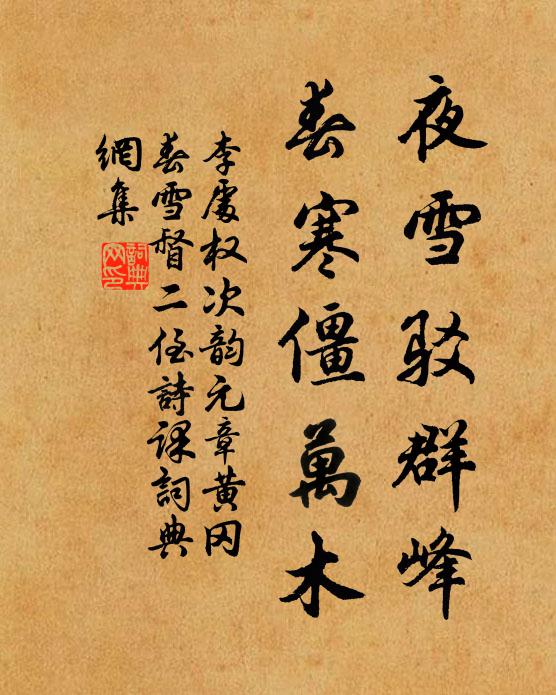 夜雪驳群峰
春寒僵萬木
李處权次韵元章黄冈
春雪督二侄詩課詞典
網集
詞典網印